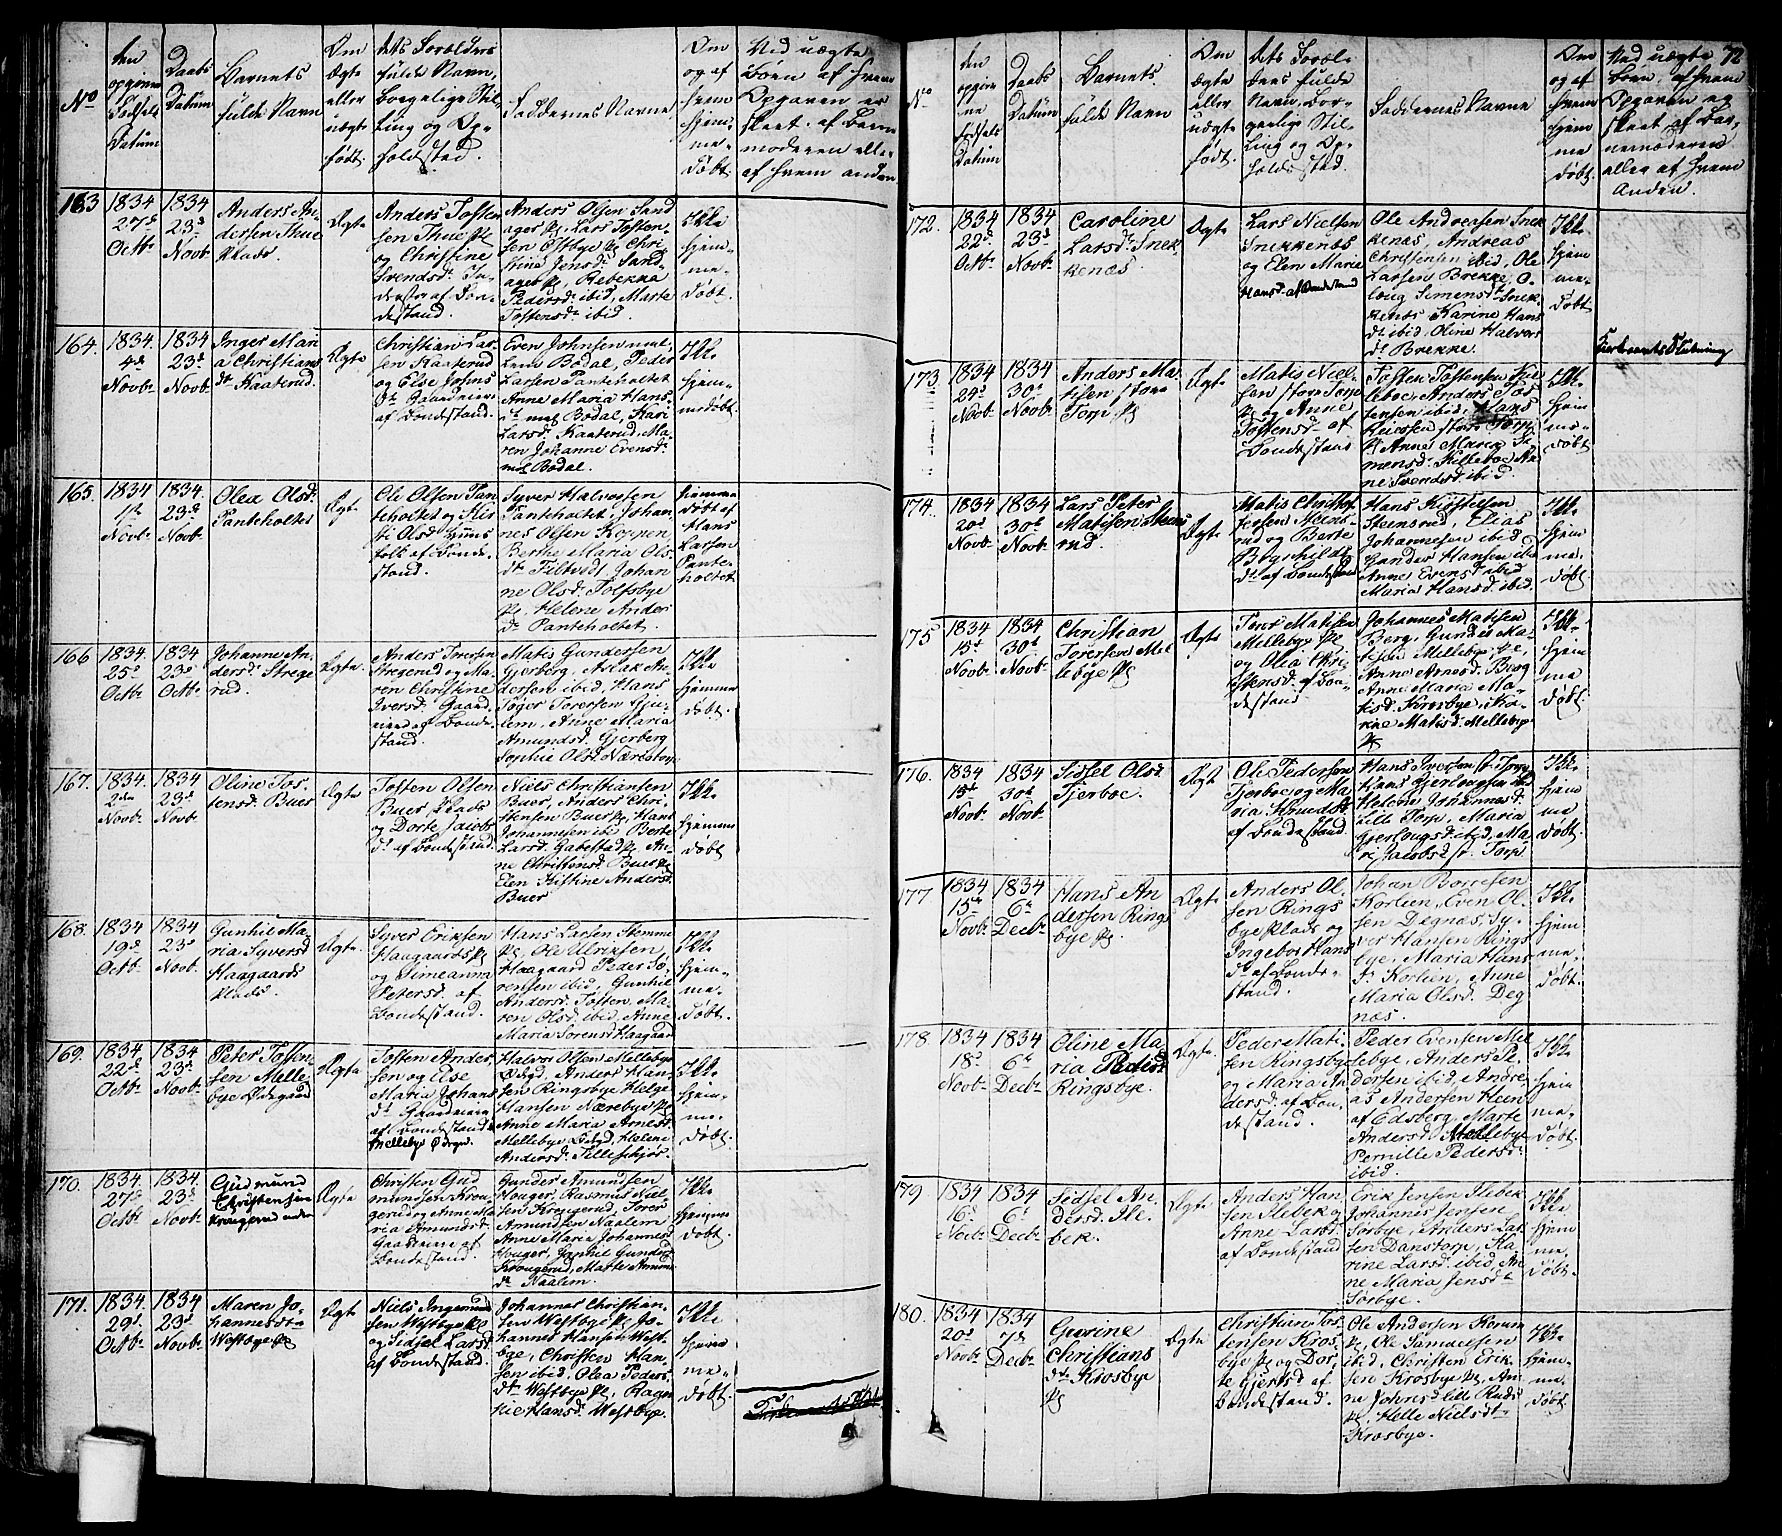 No
den
opgivne
Fødsels
Datum
Daabs
Datum
Barnets
fulde Navn
Om
ægte
eller
uægte
født.
dets Forældres
fulde Navn,
borgelige Stil-
ling og Op-
holdsted.
Faddernes Navne
Om
og af
hvem
hjem-
me-
døbt.
Ved uægte
Børn af hvem
Opgaven er
skeet. af Barne
moderen eller
af hvem anden
163
1834
27de
Octb.
1834
23d
Novb.
Anders An-
dersen Thue
Plads.
Ægte
Anders Tosten-
sen Thue Pl
og Christine
Svendsd.
af Bon-
destand.
Anders Olsen Sand
ager Pl, Lars Tosten-
sen Ostbye Pl, Chri
stine Jensd. Sand-
ager Pl, Rebekka
Pedersd. ibid, Marte
Tostensd. ibid.
Ikke
hjem-
me-
døbt.
164.
1834.
4d
Novb.
1834
23d
Novb.
Inger Mari
a Christians
dt. Kaaterud.
Ægte
Christian Lar-
sen Kaaterud
og Else Johns
dt. Gaardmænd
af Bondestand.
Even Johnsen mel-
lem Bodal, Peder
Larsen Panteholtet
Anne Maria Hans-
dt. mel Bodal, Kari
Larsd. Kaaterud, Ma-
ren Johanne Evensd.
mel Bodal.
Ikke
hjem-
medøbt.
165.
1834
1st
Novb.
1834.
23d
Novb.
Olea Olsd.
Panteholtet
Ægte
Ole Olsen Pan-
teholtet og Kir-
sti Olsd. Huus
folk af Bonde-
stand.
Syver Halvorsen
Panteholtet, Johan-
nes Olsen Koppen
Berthe Maria Ols-
dt. Filtvedt, Johan
ne Olsd. Tolfsbye
Pl, Helene Anders
dt. Panteholtet.
hjemme
døbt af
Hans
Larsen
Pante-
holtet
166
1834.
25d
Octb.
1834
23d
Octb.
Johanne An-
dersd. Strege
rud.
Ægte.
Anders Torersen
Stregerud og Ma-
ren Christine
Iversd. Gaard
mænd af Bonde
stand.
Matis Gundersen
Gjerberg, Aslak An-
dersen ibid, Hans
Torersen
Anne Maria
Amundsd. Gjerberg
Sophie Olsd. Nærestorp
Ikke
hjemme
døbt.
167.
1834.
2den
Novb.
1834
23d
Novb.
Oline Tos-
tensd. Buer
Ægte
Tosten Olsen
Buer Plads
og Dorte Jacobs
dt. af Bondestand.
Niels Christiansen
Buer, Anders Chri-
stensen Buer Pl, Hans
Johannesen ibid, Berte
Larsd. Gabestad Pl, An-
ne Christensd. Buer Pl
Elen Kistine Andersd.
Buer
Ikke
hjemme
døbt
168.
1834
19d
Octb.
1834
23d
Novb.
Gunhil Ma-
ria Syversd
Haagaards
Plads.
Ægte.
Syver Eriksen
Haagaards Pl
og Simeanna
Petersd. af
Bondestand.
Hans Larsen Stemme
Pl, Ole Ulriksen
Haagaard Peder So-
rensen ibid, Gunhil
Andersd. Tosten, Ma-
ren Olsd. ibid, Anne
Maria Sorensd. Haagaard
Ikke
hjem-
me-
døbt.
169.
1834.
22d
Octb.
1834
23d
Novb.
Peter Tosten-
sen Melle-
bye Ødegaard
Ægte
Tosten Ander-
sen og Else
Maria Johans
dt. Gaardmænd
af Bondestand
Mellebye Ødegd.
Halvor Olsen Mellebye
Ødegd, Anders Han-
sen Ringsbye, Helge
Hansen Nærebye Pl
Anne Maria Arnesd.
Mellebye Ødegd, Helene
Andersd.
Ikke
hjem-
me-
døbt.
170.
1834.
27d
Octb.
1834.
23d
Novb.
Gudmund
Christensen
Krougerud
Ægte
Christen Gud
mundsen Krou-
gerud og Anne Ma-
ria Amundsd.
Gaardmænd af
Bondestand.
Gunder Amundsen
Houger, Rasmus Niel
sen Krougerud, Torer
Amundsen Naalem
Anne Maria Johannesd
Houger, Gunhil Gundersd.
Krougerud, Marte Amund
dt. Naalem.
Ikke
hjemme
døbt.
171.
1834.
29d.
Octb.
1834
23d
Novb.
Maren Jo-
hannesdtr
Westbye Pl
Ægte
Niels Ingemund
sen Westbye Pl
og Sidsel Larsd.
af Bondestand.
Johannes Christian-
sen Westbye Pl, Jo-
hannes Hansen West-
bye, Christen Han-
sen ibid, Olea Peders
dt. Westbye Pl, Ragn
hie Hansd. Westbye.
Ikke
hjem
me-
døbt.
72
No
den
opgiv
ne
Fødsels
Datum
Daabs
Datum
Barnets
fulde Navn
Om
ægte
eller
uægte
født.
dets Foræl-
dres fulde
Navn, bor-
gerlige Stil-
ling og Op-
holdssted.
Faddernes Navne
Om
og af
hvem
hjem
me
døbt.
Ved uægte
Børn, af hvem
Opgaven er
skeet, af Bar-
nemoderen
eller af hvem
Anden.
172.
1834
22d
Octb.
1834
23d
Novb.
Caroline
Larsdt. Snek
kenæs.
Ægte
Lars Nielsen
Snekkenæs
og Elen Marie
Hansd. af Bondestand
Ole Andreasen Snek
kenæs, Andreas
Christensen ibid, Ole
Larsen Brekke, O-
laug Simensdt. Snek-
kenæs Karine Hans
dt. ibid, Oline Halvors
dt. Brekke.
Ikke
hjem
me-
døbt.
173.
1834
24d
Novb.
1834
30d
Novb.
Anders Ma-
tisen store
Torp Pl
Ægte
Matis Niel-
sen store Torp
Pl og Anne
Tostensd. af
Bondestand
Tosten Tostensen Kil-
leboe, Anders Tos-
tensen ibid, Hans
store Torp
Pl Anne Maria Si-
mensd. Killeboe An
ne Svendsd. ibid.
Ikke
hjem
me-
døbt.
Fierbeents Slutning
174.
1834
20d
Novb.
1834
30d
Novb.
Lars Peter
Matisen Steens
rud.
Ægte
Matis Christof
fersen Steens-
rud og Berte
Børghilds
dt. af Bondestand
Hans Kirstensen
Steensrud, Elias
Johannesen ibid
Gunder Hansen ibid
Anne Evensd. ibid
Maria Hansd. ibid.
Ikke
hjem
me-
døbt.
175
1834
15d
Novb.
1834
30d
Novb.
Christian
Torersen Mel
lebye Pl
Ægte
Tore Matisen
Mellebye Pl
og Olea Chri-
stensd. af Bon-
destand
Johannes Matisen
Berg, Gunder Ma-
tisen Mellebye Pl,
Anne Arnesd. Berg
Anne Maria Ma-
tisd. Krosbye, Ka-
rine Matisd. Mellebye
Pl
Ikke
hjem
me
døbt.
176.
1834
15d
Novb.
1834
30d
Novb.
Sidsel Olsd.
Tjerboe.
Ægte
Ole Pedersen
Tjerboe og Ma-
ria Knudsd.
af Bondestand.
Hans Iversen st. Torp
Helene Johannesd.
lille Torp, Maria
Gjerlougsd. ibid, Ma-
ri Jacobsd. st. Torp
Ikke
hjem
me
døbt.
177
1834
15d
Novb.
1834
6d
Decb.
Hans An
dersen Rings
bye Pl
Ægte
Anders Ol-
sen Rings
bye Plads og
Ingebor Hans
dt. af Bonde-
stand.
Johan Borresen
Korlien, Even Ol-
sen Degnæs, Sy-
ver Hansen Rings
bye, Maria Hans
dt. Korlien, Anne
Maria Olsd. Deg
næs.
Ikke
hjem
me-
døbt.
178.
1834
18d
Novb.
1834
6d
Decb.
Oline Ma-
ria Pedersd
Ringsbye.
Ægte.
Peder Mati-
sen Ringsbye
og Maria An
dersd. af Bon-
destand.
Peder Evensen Mel
lebye, Anders Pe-
dersen ibid, Andre-
as Andersen Heen
af Edsberg, Marte
Andersd. Mellebye
Pernille Pedersd.
ibid.
Ikke
hjem
me-
døbt.
179.
1834
16d
Novb.
1834
6d
Decb.
Sidsel An-
dersd. Ile-
bek.
Ægte
Anders Han-
sen Ilebek og
Anne Larsd.
af Bondestand
Erik Jensen Ilebek
Johannes Jensen
Sørbye, Anders Lar-
sen Danstorp, Ka-
rine Larsd. ibid, An-
ne Maria Jensdt.
Sørbye.
Ikke
hjem
me-
døbt.
180.
1834
20d
Novb.
1834
7d
Decb.
Gurine
Christians
dt. Krosbye
Pl
Ægte
Christian Tos-
tensen Kros-
bye Pl og Dor-
te Gjertsd. af
Bondestand.
Ole Andersen Korum
Pl, Ole Samuelsen
ibid, Christen Erik-
sen Krosbye Pl, An-
ne Johnsd. lille Ruds
Pl, Helle Nielsdt.
Krosbye.
Ikke
hjem-
me-
døbt.